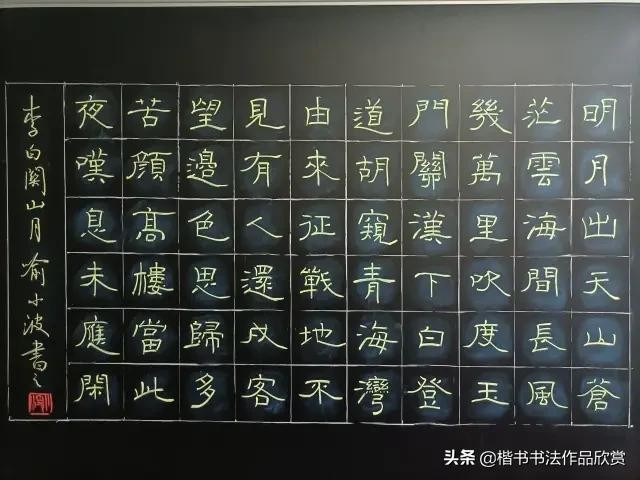 明月出天山蒼
茫雲海間長風
幾萬里吹度玉
門關漢下白登
道胡窺青海灣
由來征戰地不
見有人還戍客
望邊色思歸多
苦顏高樓當此
夜嘆息未應閑
李白関山月 俞小波書之
头条 @楷书书法作品欣赏